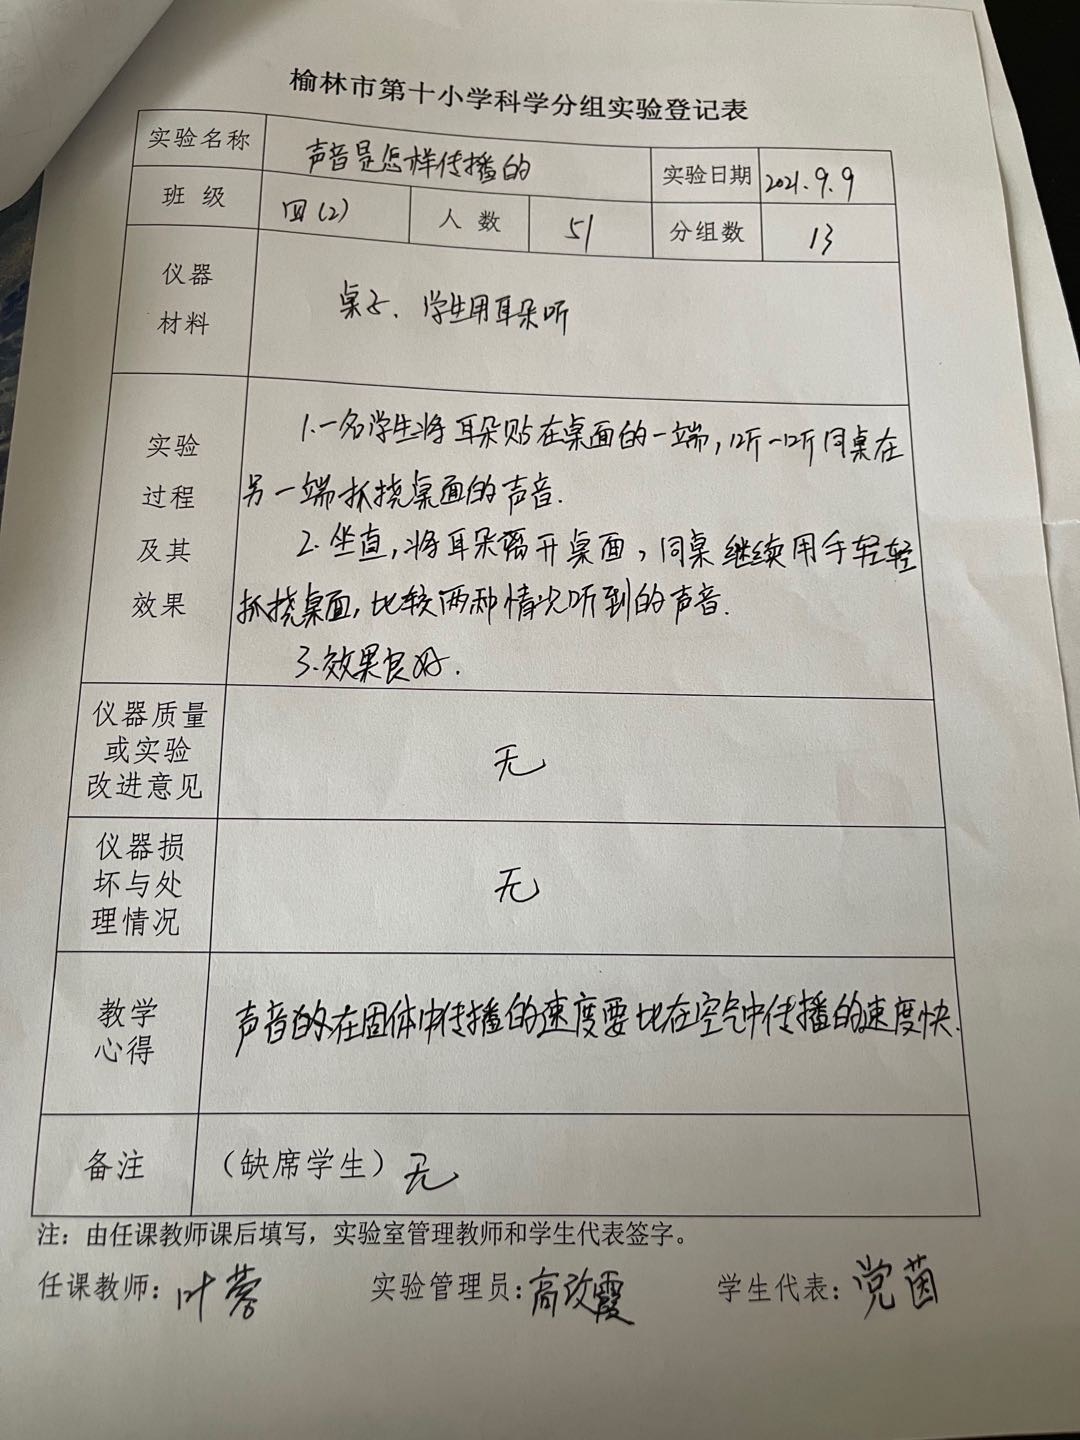 榆林市第十小学科学分组实验登记表
实验名称 声音是怎样传播的 实验日期 2021.9.9
班级 四(2) 人数 51 分组数 13
仪器
材料
桌子、学生用耳朵听
实验
过程
及其
效果
1.一名学生将耳朵贴在桌面的一端,听一听同桌在
另一端抓挠桌面的声音.
2.坐直,将耳朵离开桌面,同桌继续用手轻轻
抓挠桌面,比较两种情况听到的声音.
3.效果良好.
仪器质量
或实验
改进意见
无
仪器损
坏与处
理情况
无
教学
心得
声音的在固体中传播的速度要比在空气中传播的速度快.
备注 (缺席学生)无
注：由任课教师课后填写，实验室管理教师和学生代表签字。
任课教师：叶蓉 实验管理员：高改霞 学生代表：党茵